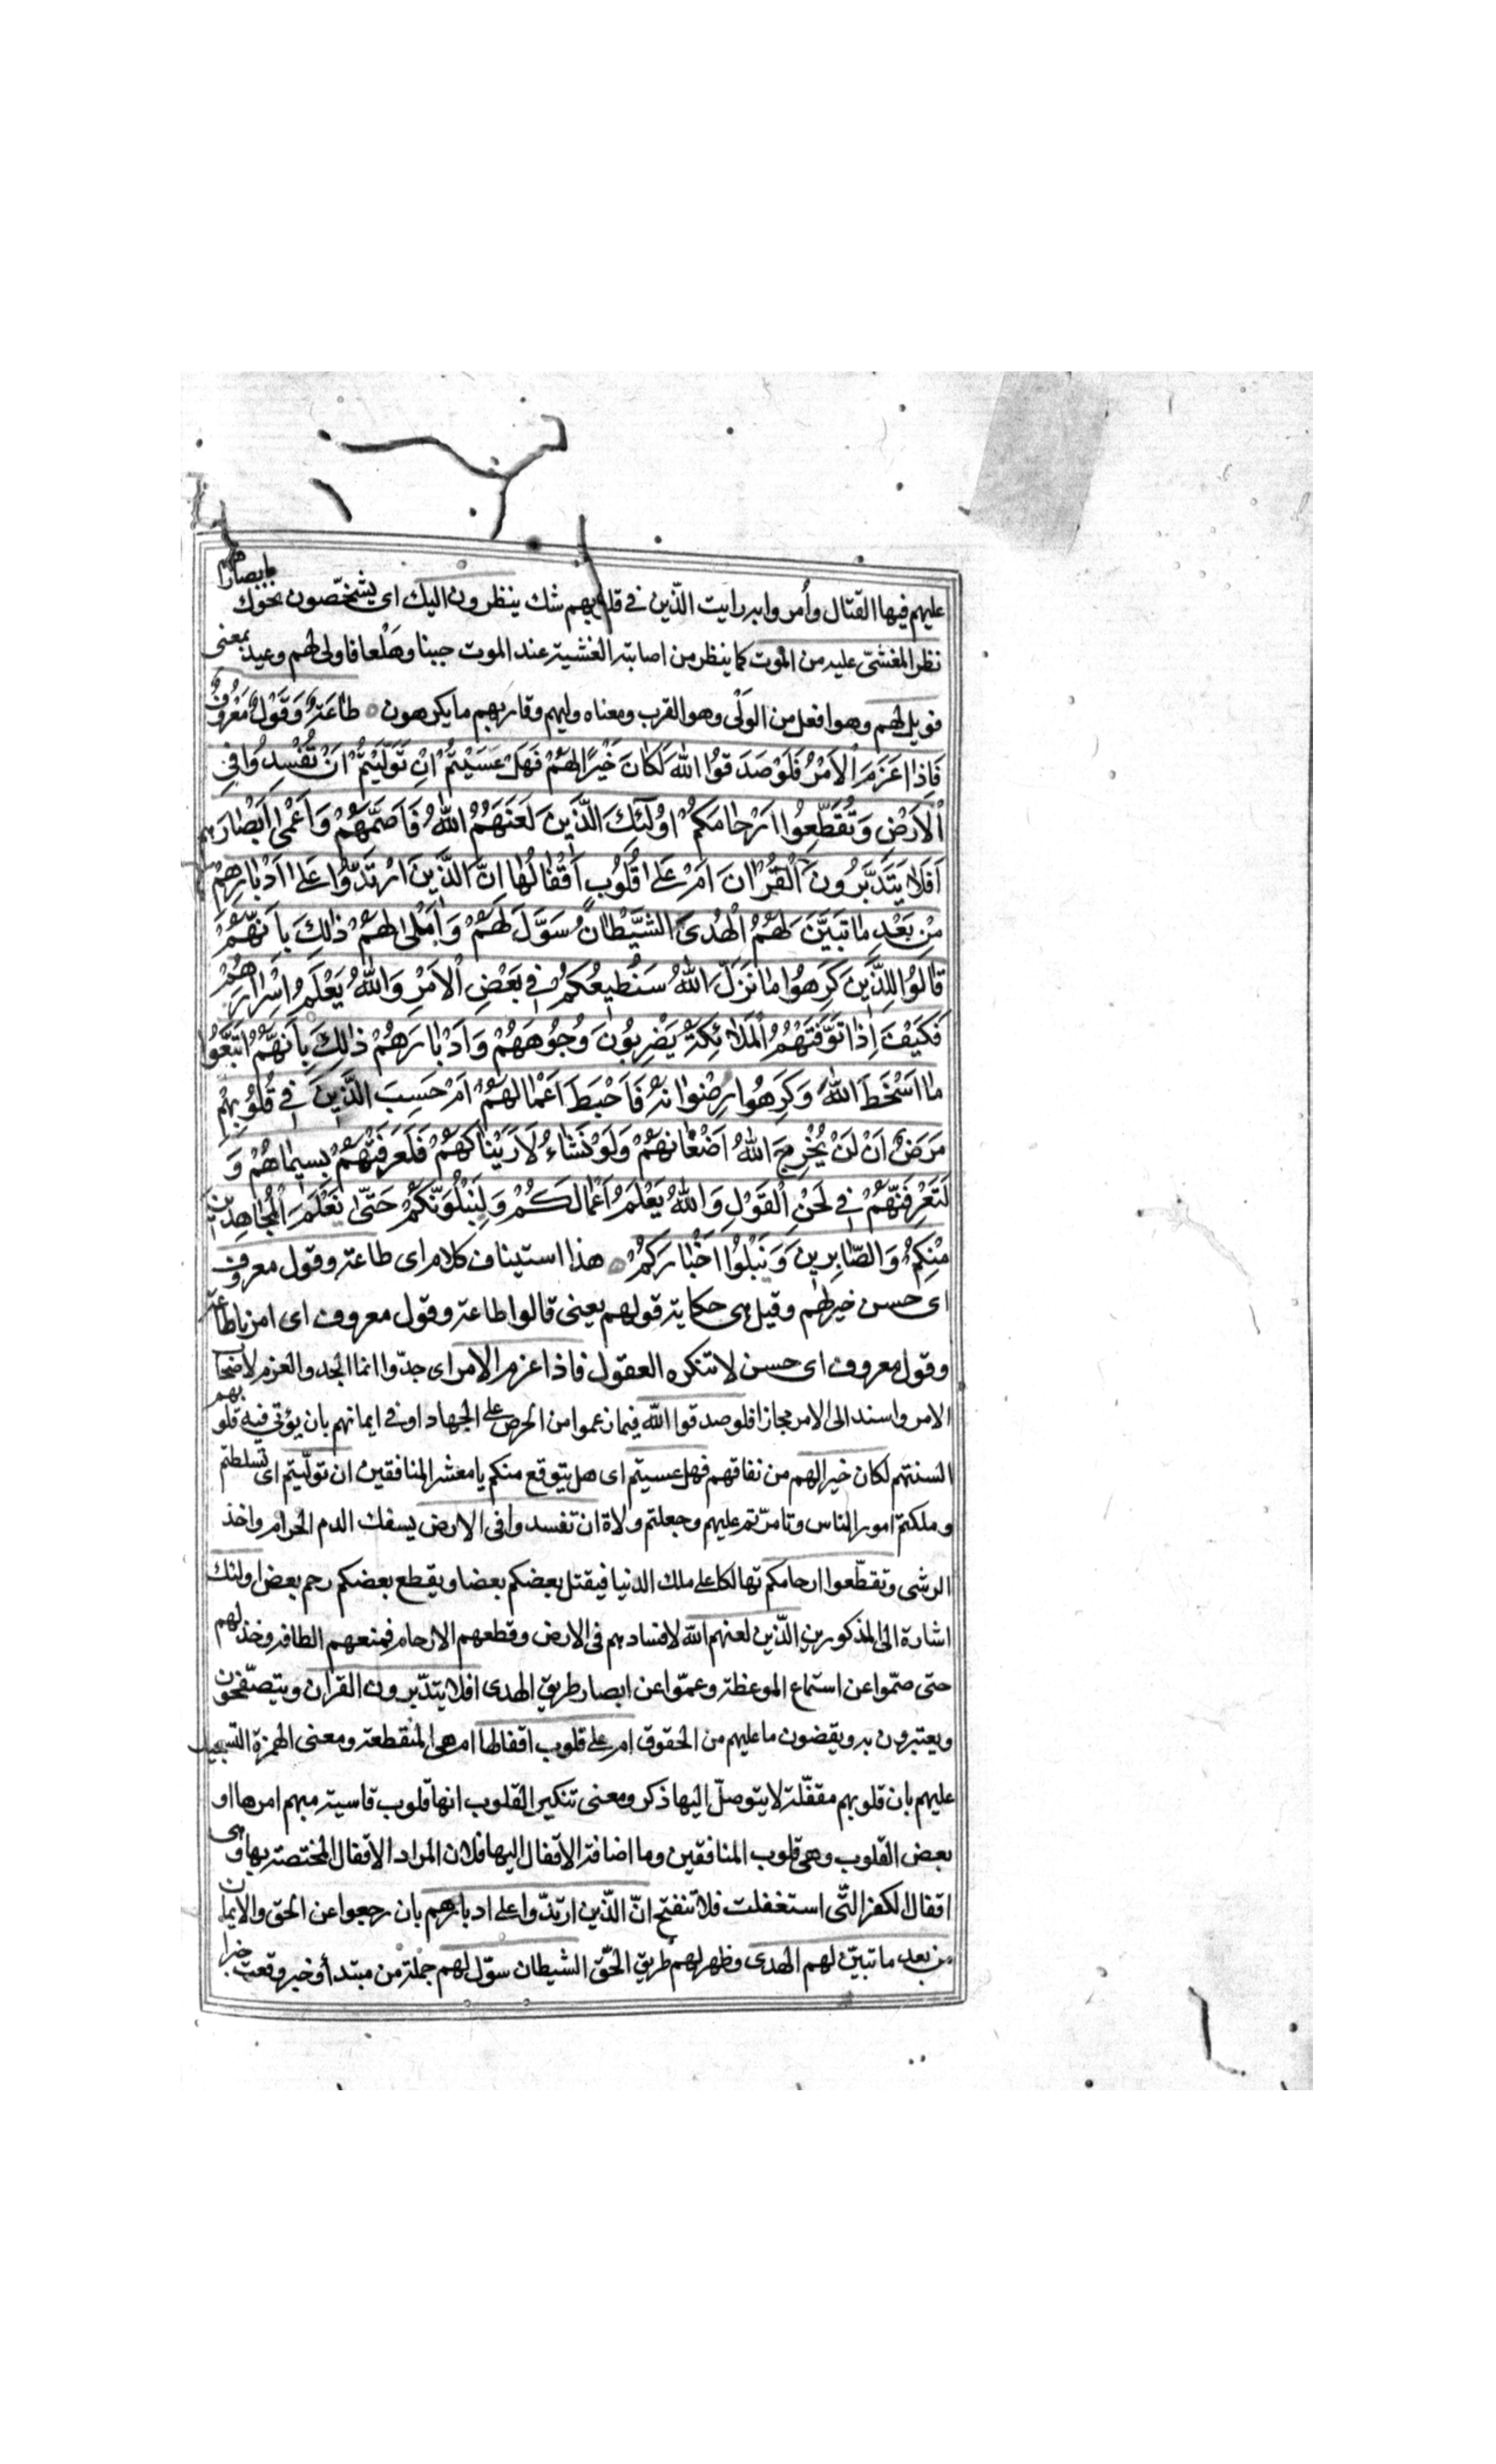 عليهم فيها القتال وأمروا به رايت الّذين في قلوبهم شك ينظرون اليك اى يشخّصون نحوك بابصارهم
نظر المغشىّ عليه من الموت كما ينظر من اصابته الغشية عند الموت جبنا وهَلْعا فاولى لهم وعيد بمعنى
فويل لهم وهو افعل من الوَلْى وهو القرب ومعناه وليهم وقاربهم ما يكرهون طَاعَةٌ وَقَوْلٌ مَعْرُوفٌ
فَاِذا عَزَمَ الْاَمْرُ فَلَوْ صَدَقُوا اللّهَ لَكانَ خَيْرًا لَهُمْ فَهَلْ عَسَيْتُمْ اِنْ تَوَلَّيْتُمْ اَنْ تُفْسِدُوا فِى
الْاَرْضِ وَتُقَطِّعُوا اَرْحامَكُمْ اُولٰئِكَ الَّذينَ لَعَنَهُمُ اللّهُ فَاَصَمَّهُمْ وَاَعْمٰى اَبْصارَهُمْ
اَفَلا يَتَدَبَّرُونَ الْقُرْانَ اَمْ عَلٰى قُلُوبٍ اَقْفالُها اِنَّ الَّذينَ ارْتَدُّوا عَلٰى اَدْبارِهِمْ
مِنْ بَعْدِ ما تَبَيَّنَ لَهُمُ الْهُدَى الشَّيْطانُ سَوَّلَ لَهُمْ وَاَمْلٰى لَهُمْ ذٰلِكَ بِاَنَّهُمْ
قالُوا لِلَّذينَ كَرِهُوا ما نَزَّلَ اللّهُ سَنُطيعُكُمْ فى بَعْضِ الْاَمْرِ وَاللّهُ يَعْلَمُ اِسْرارَهُمْ
فَكَيْفَ اِذا تَوَفَّتْهُمُ الْمَلائِكَةُ يَضْرِبُونَ وُجُوهَهُمْ وَاَدْبارَهُمْ ذٰلِكَ بِاَنَّهُمُ اتَّبَعُوا
ما اَسْخَطَ اللّهَ وَكَرِهُوا رِضْوانَهُ فَاَحْبَطَ اَعْمالَهُمْ اَمْ حَسِبَ الَّذينَ فى قُلُوبِهِمْ
مَرَضٌ اَنْ لَنْ يُخْرِجَ اللّهُ اَضْغانَهُمْ وَلَوْ نَشاءُ لَاَرَيْناكَهُمْ فَلَعَرَفْتَهُمْ بِسيماهُمْ وَ
لَتَعْرِفَنَّهُمْ فى لَحْنِ الْقَوْلِ وَاللّهُ يَعْلَمُ اَعْمالَكُمْ وَلَنَبْلُوَنَّكُمْ حَتّٰى نَعْلَمَ الْمُجاهِدينَ
مِنْكُمْ وَالصّابِرينَ وَنَبْلُوَا اَخْبارَكُمْ هذا استيناف كلام اى طاعة وقول معروف
اى حسن خير لهم وقيل هى حكاية قولهم يعنى قالوا طاعة وقول معروف اى امرنا طاعة
وقول معروف اى حسن لا تنكره العقول فاذا عزم الامر اى جدّوا انما الجد والعزم لاصحاب
الامر واسند الى الامر مجازا فلو صدقوا اللّه فيما زعموا من الحرص على الجهاد او فى ايمانهم بان يؤتى فيه قلوبهم
السنتهم لكان خيرا لهم من نفاقهم فهل عسيتم اى هل يتوقع منكم يا معشر المنافقين ان تولّيتم اى تسلطتم
وملكتم امور الناس وتامرّتم عليهم وجعلتم ولاة ان تفسدوا فى الارض بسفك الدم الحرام واخذ
الرشى وتقطّعوا ارحامكم تهالكا على ملك الدنيا فيقتل بعضكم بعضا ويقطع بعضكم رحم بعض اولئك
اشارة الى المذكورين الّذين لعنهم اللّه لافسادهم فى الارض وقطعهم الارحام فمنعهم الطافه وخذلهم
حتى صمّوا عن استماع الموعظة وعموّا عن ابصار طريق الهدى افلا يتدّبرون القران ويتصفّحون
ويعتبرون به ويقضون ما عليهم من الحقوق ام على قلوب اقفالها ام هى المنقطعة ومعنى الهمزة التسجيل
عليهم بان قلوبهم مقفّلة لا يتوصلّ اليها ذكر ومعنى تنكير القلوب انها قلوب قاسية مبهم امرها او
بعض القلوب وهى قلوب المنافقين وما اضافة الاقفال اليها فلان المراد الاقفال المختصة بها وهى
اقفال الكفر التّى استغفلت فلا تنفتح انّ الّذين ارتدّوا على ادبارهم بان رجعوا عن الحق والايمان
من بعد ما تبيّن لهم الهدى وظهر لهم طريق الحّق الشيطان سوّل لهم جملة من مبتدأ وخبر وقعت خبرا